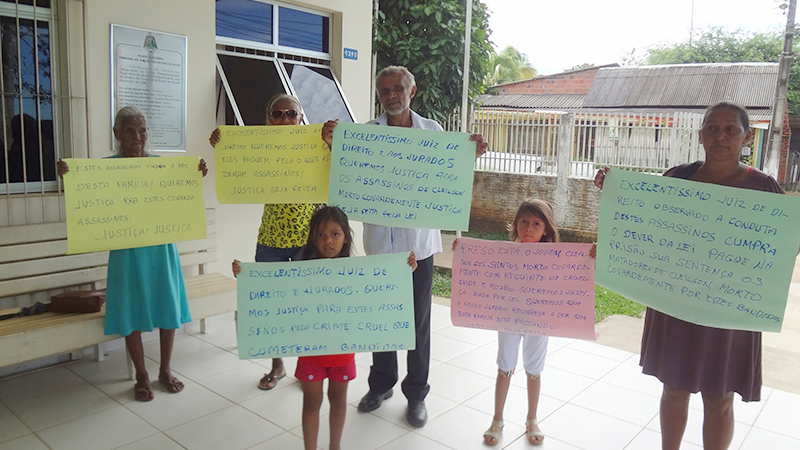 DESTA FAMÍLIA! QUEREMOS
JUSTIÇA PRA ESTES COVARDE
ASSASSINOS.
JUSTIÇA! JUSTIÇA
EXCELENTISSIMO JUIZ DE
DIREITO QUEREMOS JUSTIÇA
PAGUEM PELO O QUE
ZERAM ASSASSINOS!
JUSTIÇA SEJA FEITA
EXCELENTISSIMO JUIZ DE
DIREITO E AOS JURADOS
QUEREMOS JUSTIÇA PARA
OS ASSASSINOS DE CLEILSON,
MORTO COVARDEMENTE JUSTIÇA
SEJA FEITA PELA LEI
EXCELENTISSIMO JUIZ DE
DIREITO E JURADOS. QUERE-
MOS JUSTIÇA PARA ESTES ASSAS-
SINOS PELO CRIME CRUEL QUE
COMETERAM BANDIDOS
O JOVEM CLEIL-
SON DOS SANTOS MORTO COVARDE-
MENTE COM REQUINTE DE CRUEL
DADE E ROUBO QUEREMOS JUSTI-
ÇA DADA POR LEI. QUEREMOS QUE
EXCELENTISSIMO JUIZ DE DI-
REITO OBSERVADO A CONDUTA
DESTES ASSASSINOS CUMPRA
O DEVER DA LEI PAGUE NA
PRISÃO SUA SENTENÇA OS
MATADORES DE CLEILSON, MORTO
COVARDEMENTE POR ESTES BANDIDOS